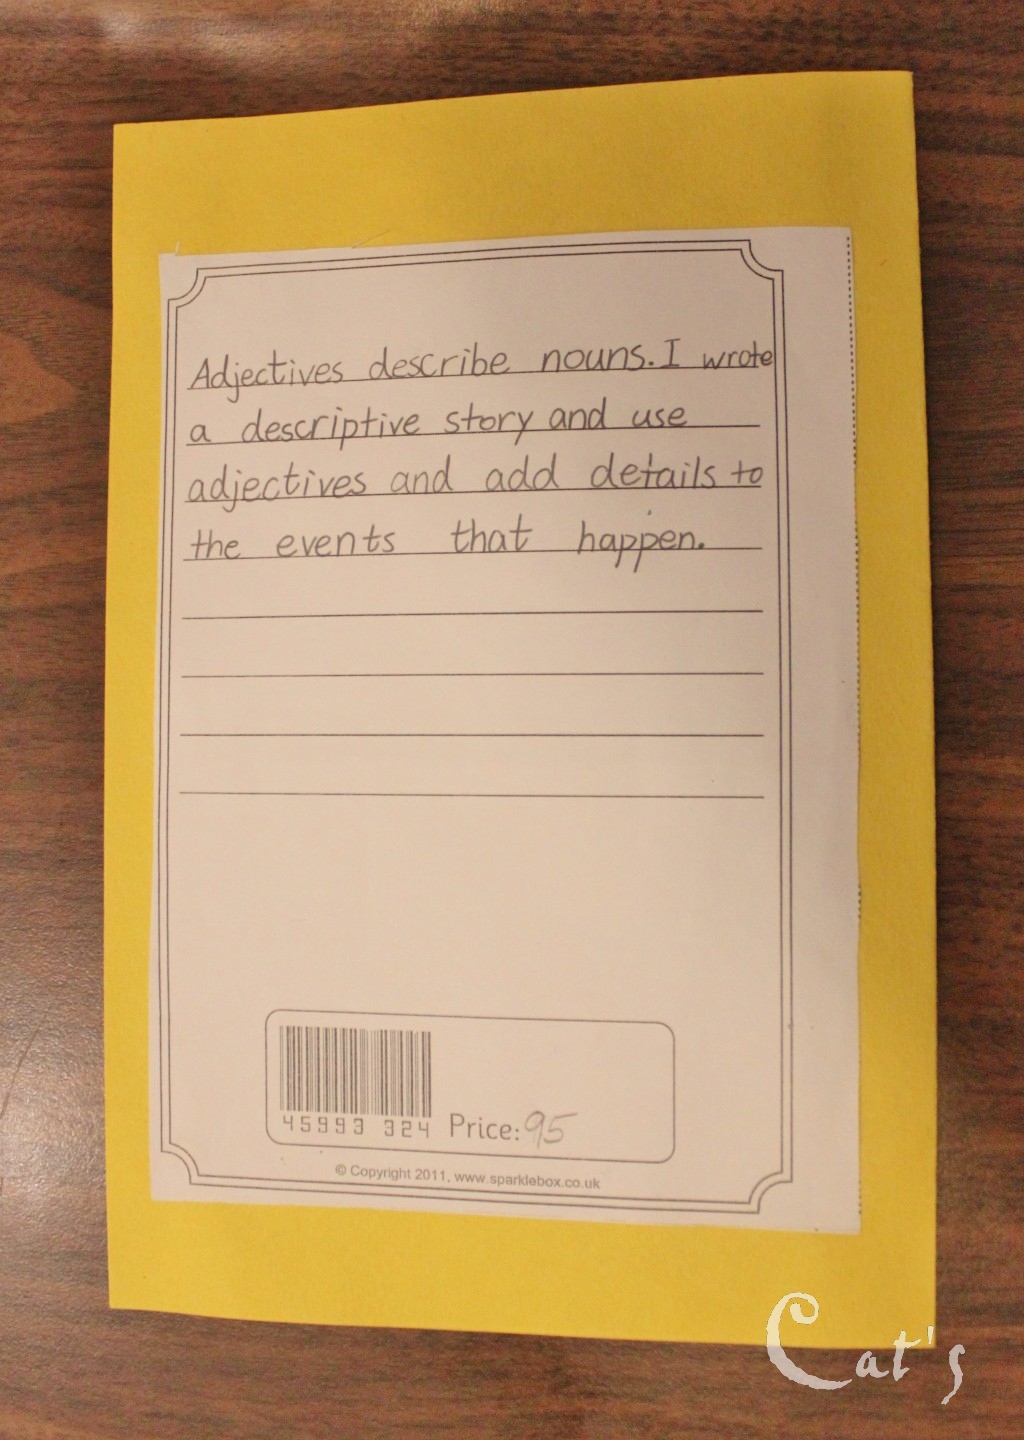 Adjectives describe nouns. I wrote
a descriptive story and use
adjectives and add details to
the events that happen.
45993 324 Price: 95
© Copyright 2011, www.sparklebox.co.uk
Cat's